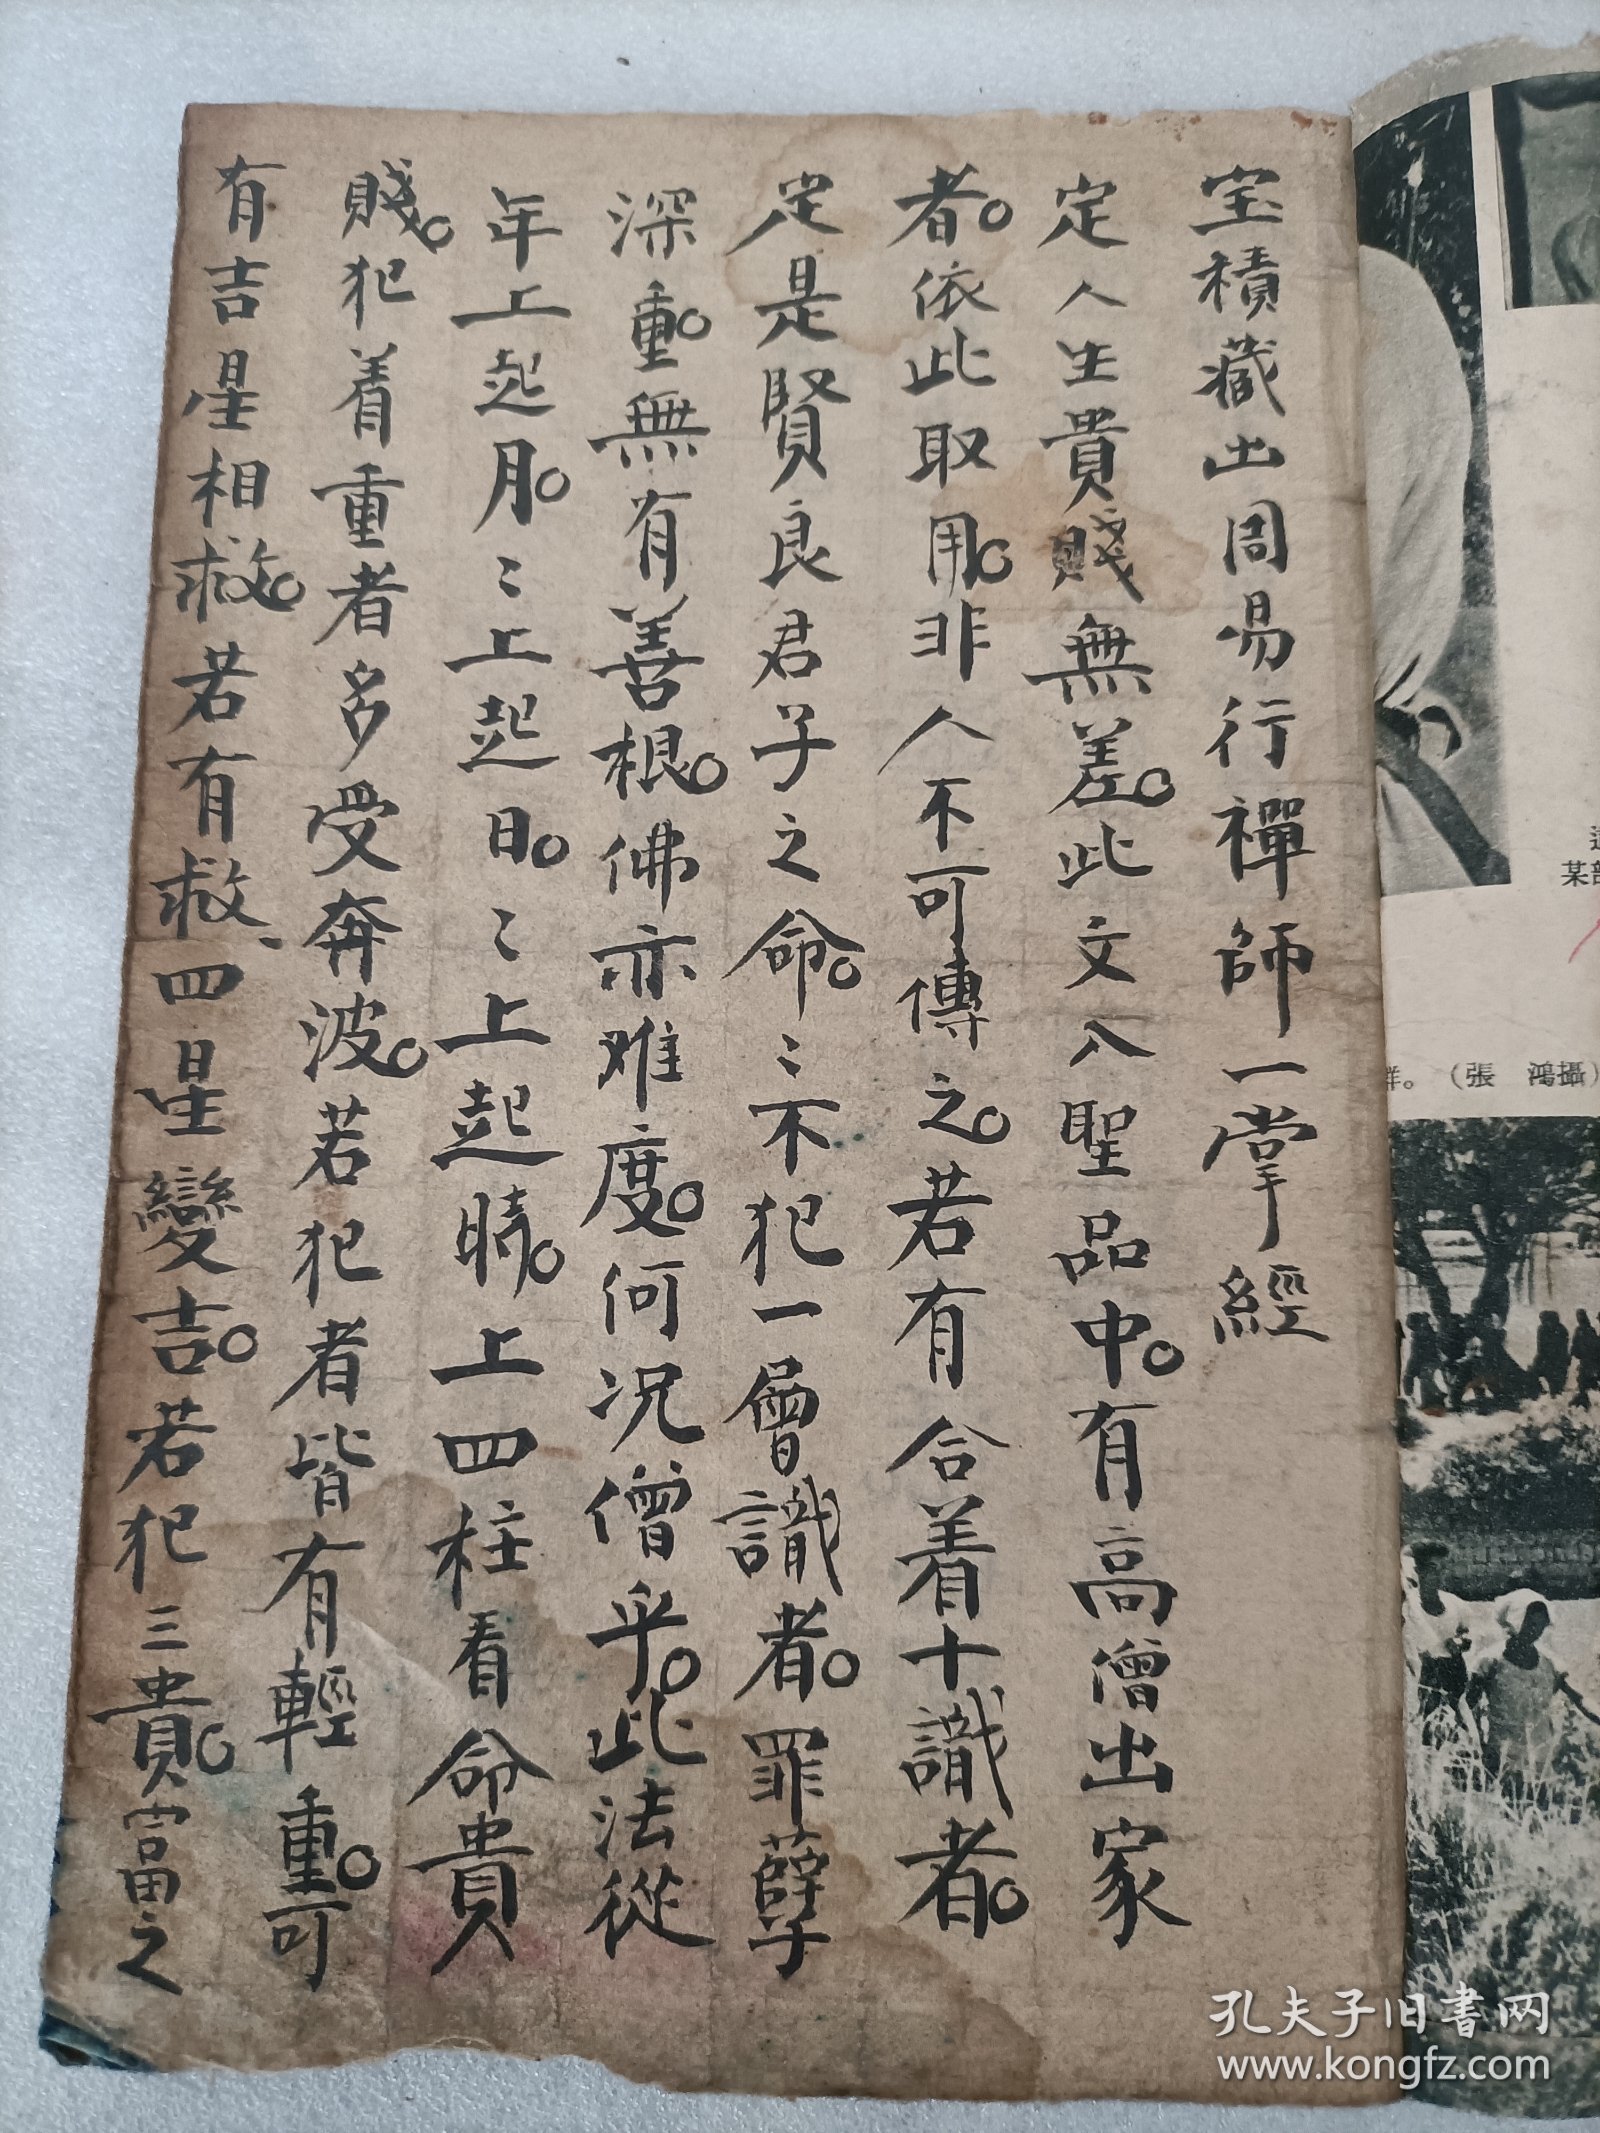 宝積藏出周易行禪師一掌經
定人生貴賤無差。此文入聖品中。有高僧出家
者。依此取用。非人不可傳之。若有合着十識者。
定是賢良君子之命。〻不犯一層識者。罪孽
深重。無有善根。佛亦难度。何况僧乎。此法從
年上起月。〻上起日。〻上起時。上四柱看命貴
賤。犯着重者多受奔波。若犯者皆有輕重。可
有吉星相救。若有救、四星變吉。若犯三貴。富之
某部
群。（張 鴻攝）
孔夫子旧書网
www.kongfz.com